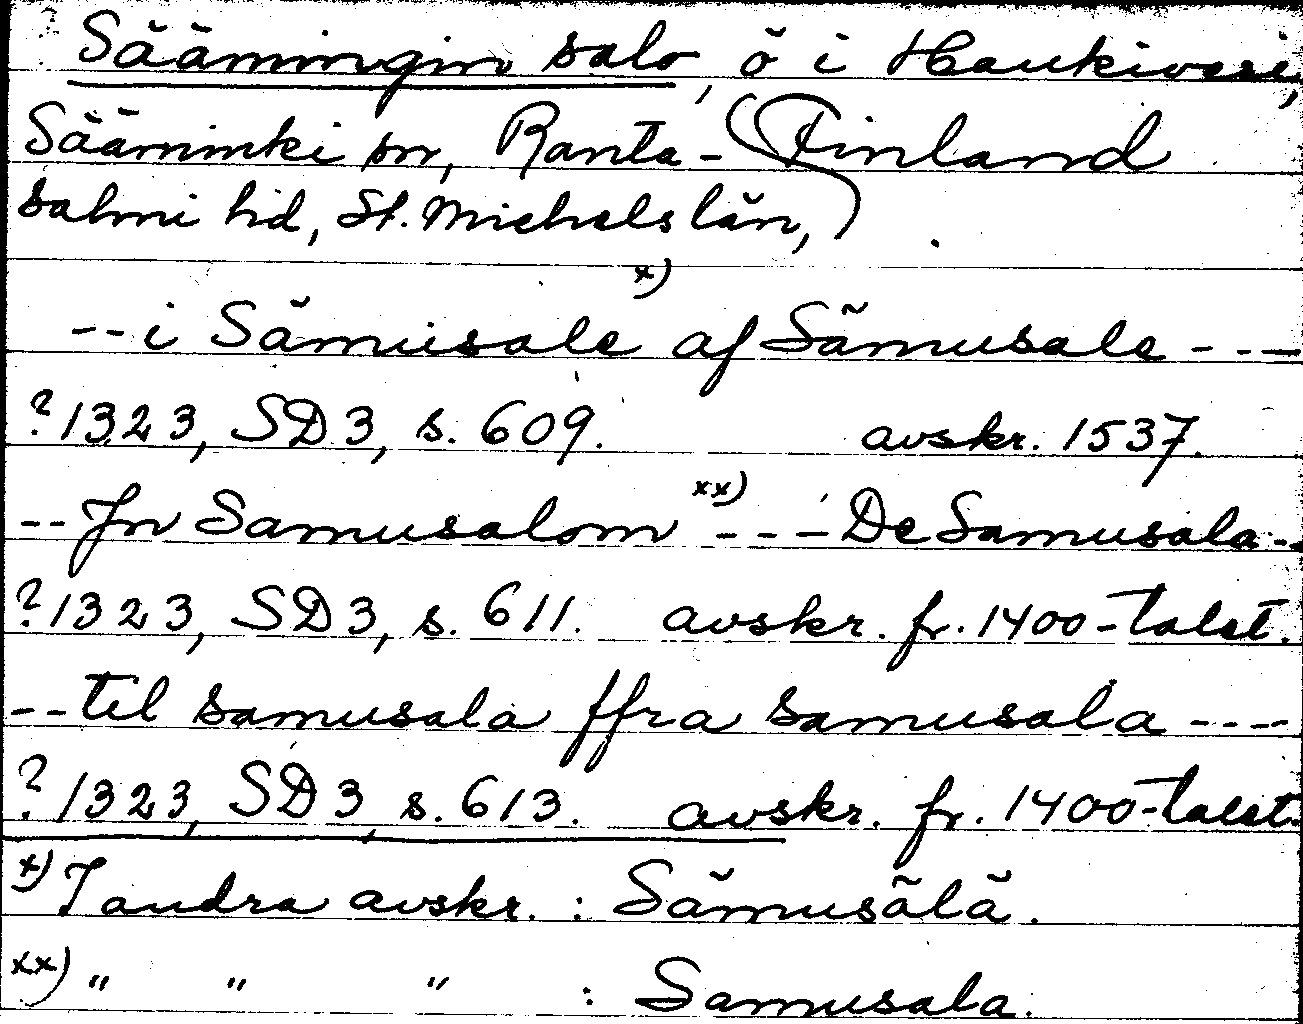 Säämingin salo, ö i Haukivesi,
Sääminki sn, Ranta- (Finland
salmi hd, St. Michels län,)
-- i Sämusale x) af Sämusale ---
? 1323, SD 3, s. 609. avskr. 1537.
-- Jn Samusalom xx) --- De Samusala --
? 1323, SD 3, s. 611. avskr. fr. 1400-talet.
-- til samusala ffra samusala ---
? 1323, SD 3, s. 613. avskr. fr. 1400-talet.
x) I andra avskr. : Sämusälä.
xx) " " " : Samusala.